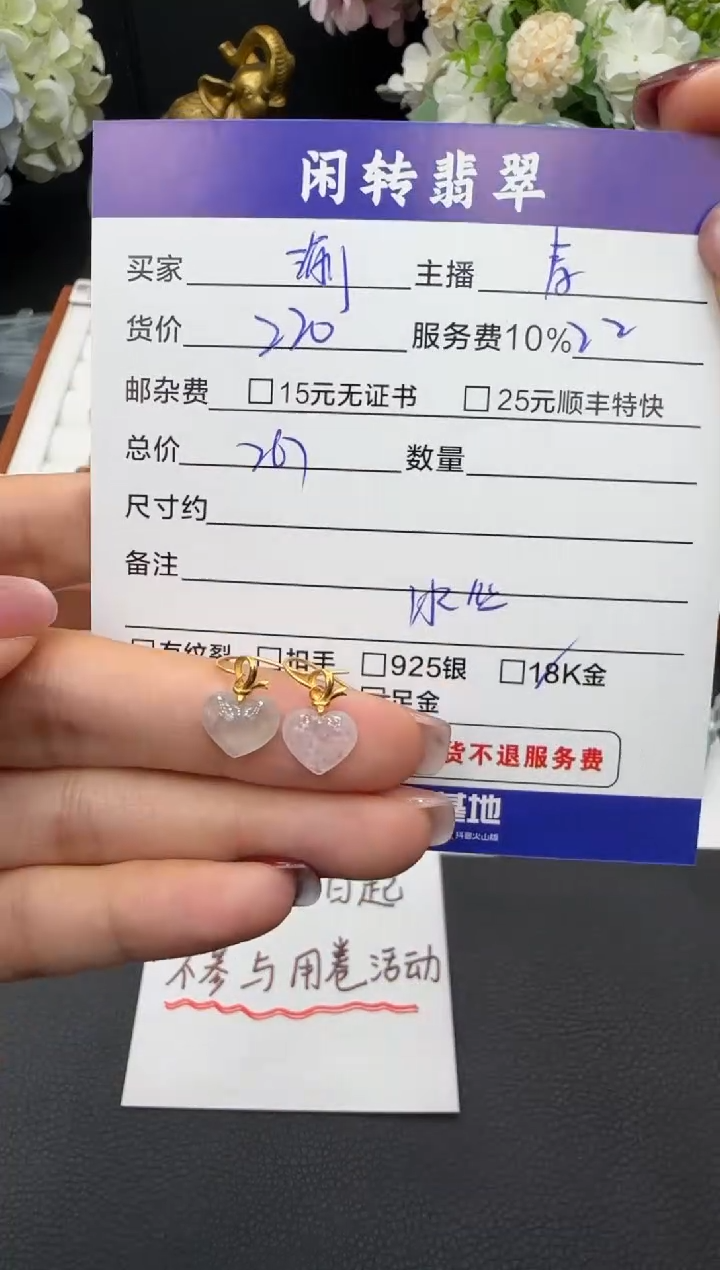 闲转翡翠
买家 主播 春
货价 220 服务费10% 22
邮杂费 □15元无证书 □25元顺丰特快
总价 267 数量
尺寸约
备注
冰
□有纹裂 □相手 □925银 □18K金
足金
货不退服务费
基地
抖音火山版
日起
不参与用卷活动